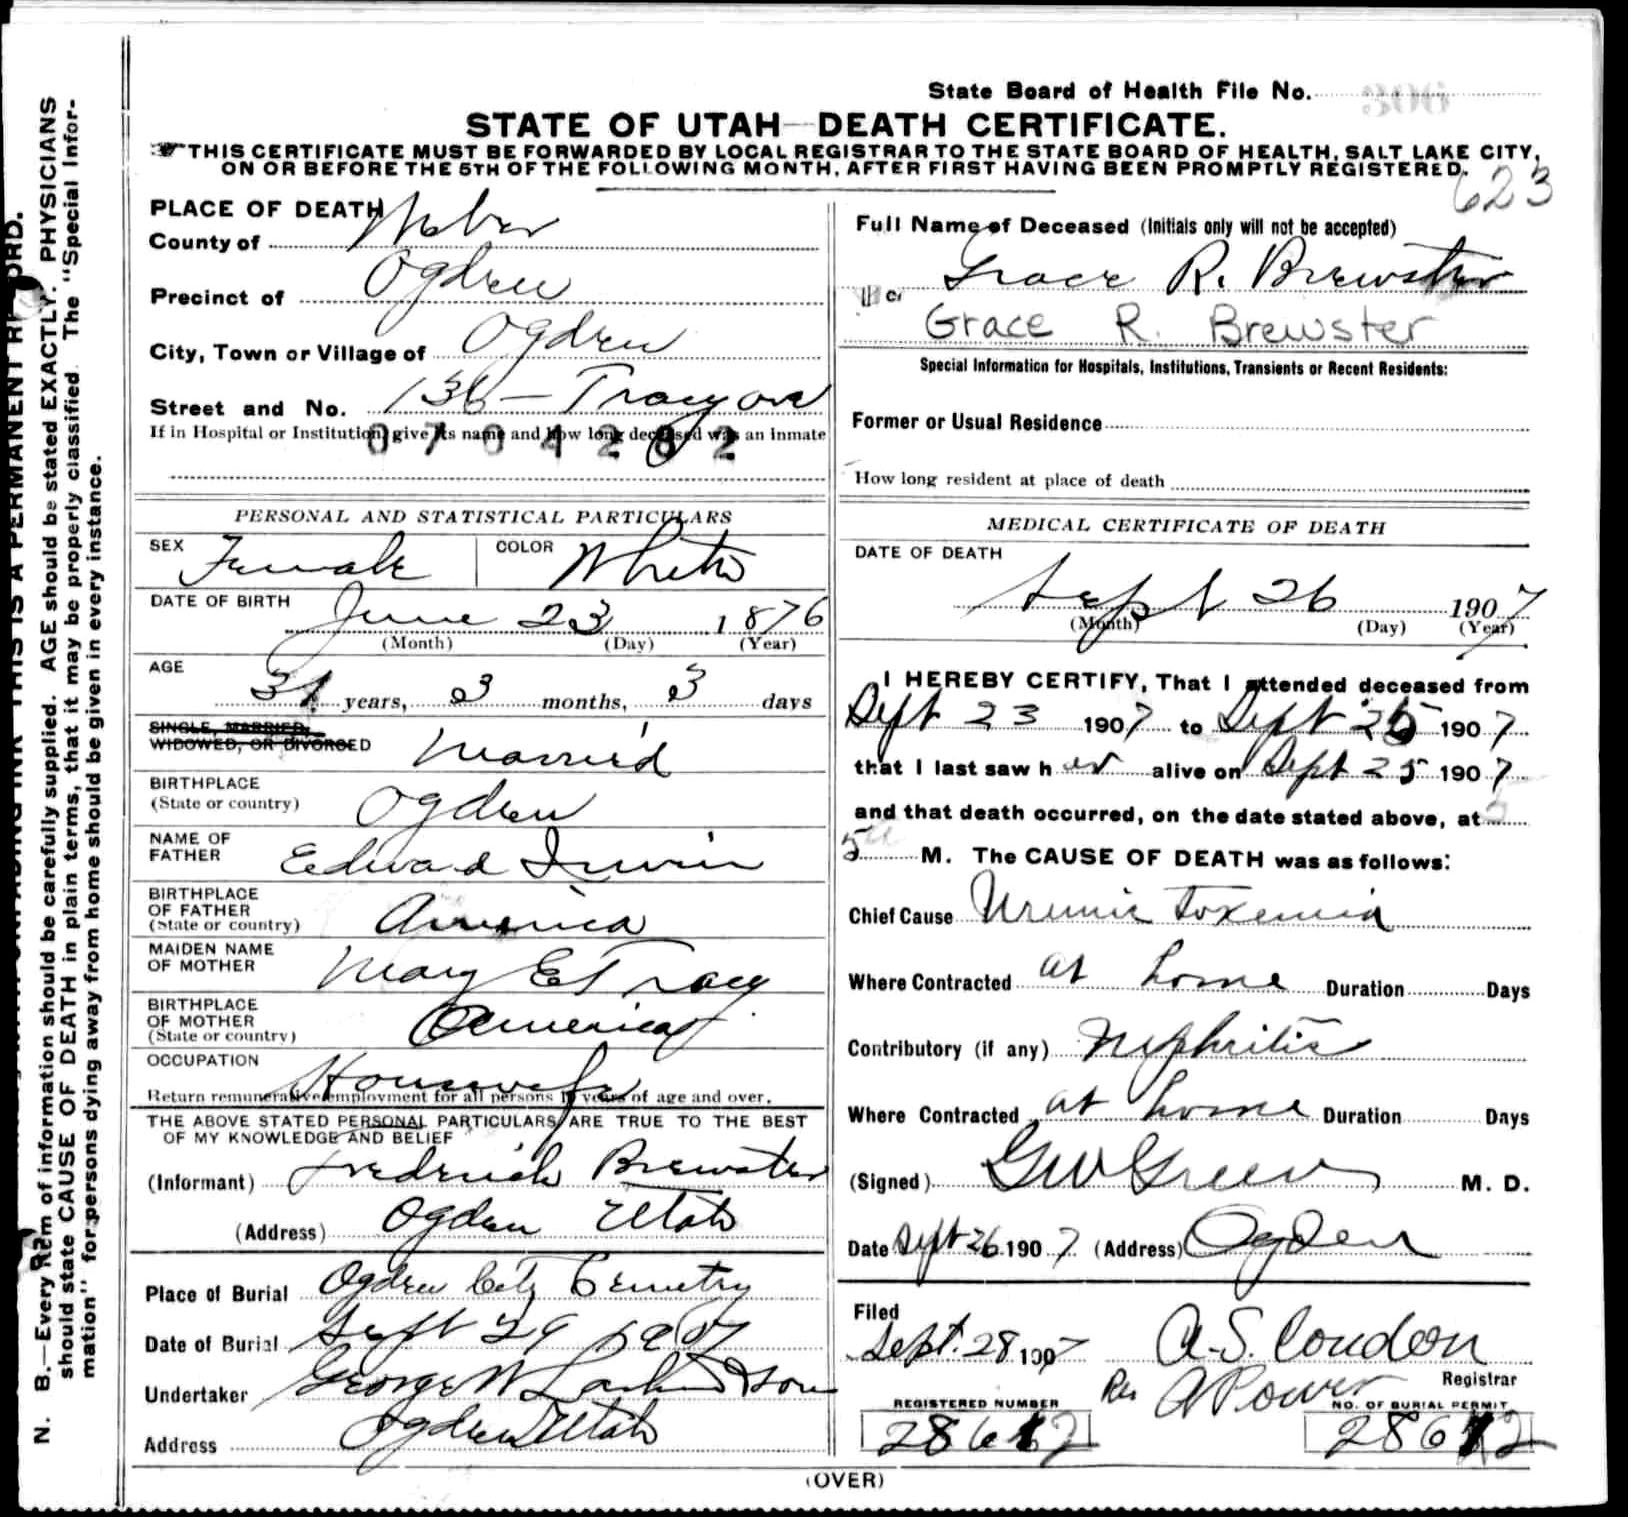 State Board of Health File No.
STATE OF UTAH—DEATH CERTIFICATE.
THIS CERTIFICATE MUST BE FORWARDED BY LOCAL REGISTRAR TO THE STATE BOARD OF HEALTH, SALT LAKE CITY,
ON OR BEFORE THE 5TH OF THE FOLLOWING MONTH, AFTER FIRST HAVING BEEN PROMPTLY REGISTERED.
623
PLACE OF DEATH
County of Weber
Precinct of Ogden
City, Town or Village of Ogden
Street and No. 136 - Tracy ave
If in Hospital or Institution, give its name and how long deceased was an inmate
0704282
PERSONAL AND STATISTICAL PARTICULARS
SEX Female COLOR White
DATE OF BIRTH June 23 1876
(Month) (Day) (Year)
AGE
31 years, 3 months, 3 days
SINGLE, MARRIED,
WIDOWED, OR DIVORCED Married
BIRTHPLACE
(State or country) Ogden
NAME OF
FATHER Edward Irwin
BIRTHPLACE
OF FATHER
(State or country) America
MAIDEN NAME
OF MOTHER Mary E Tracy
BIRTHPLACE
OF MOTHER
(State or country) America
OCCUPATION
Housewife
Return remunerative employment for all persons years of age and over.
THE ABOVE STATED PERSONAL PARTICULARS ARE TRUE TO THE BEST
OF MY KNOWLEDGE AND BELIEF
(Informant) Fredrick Brewster
(Address) Ogden Utah
Place of Burial Ogden City Cemetry
Date of Burial Sept 29 1907
Undertaker George W Larkin & Son
Address Ogden Utah
Full Name of Deceased (Initials only will not be accepted)
Grace R. Brewster
Grace R. Brewster
Special Information for Hospitals, Institutions, Transients or Recent Residents:
Former or Usual Residence
How long resident at place of death
MEDICAL CERTIFICATE OF DEATH
DATE OF DEATH
Sept 26 1907
(Month) (Day) (Year)
I HEREBY CERTIFY, That I attended deceased from
Sept 23 1907 to Sept 1907
that I last saw her alive on Sept 25 1907
and that death occurred, on the date stated above, at 5
5 M. The CAUSE OF DEATH was as follows:
Chief Cause Uremic Toxemia
Where Contracted at home Duration Days
Contributory (if any) Nephritis
Where Contracted at home Duration Days
(Signed) GW Green M. D.
Date Sept 26 1907 (Address) Ogden
Filed
Sept. 28 1907 A. S. Condon
Registrar
Per A Power
REGISTERED NUMBER NO. OF BURIAL PERMIT
28612 28612
(OVER)
N. B.—Every Item of information should be carefully supplied. AGE should be stated EXACTLY. PHYSICIANS
should state CAUSE OF DEATH in plain terms, that it may be properly classified. The "Special Infor-
mation" for persons dying away from home should be given in every instance.
THIS IS A PERMANENT RECORD.